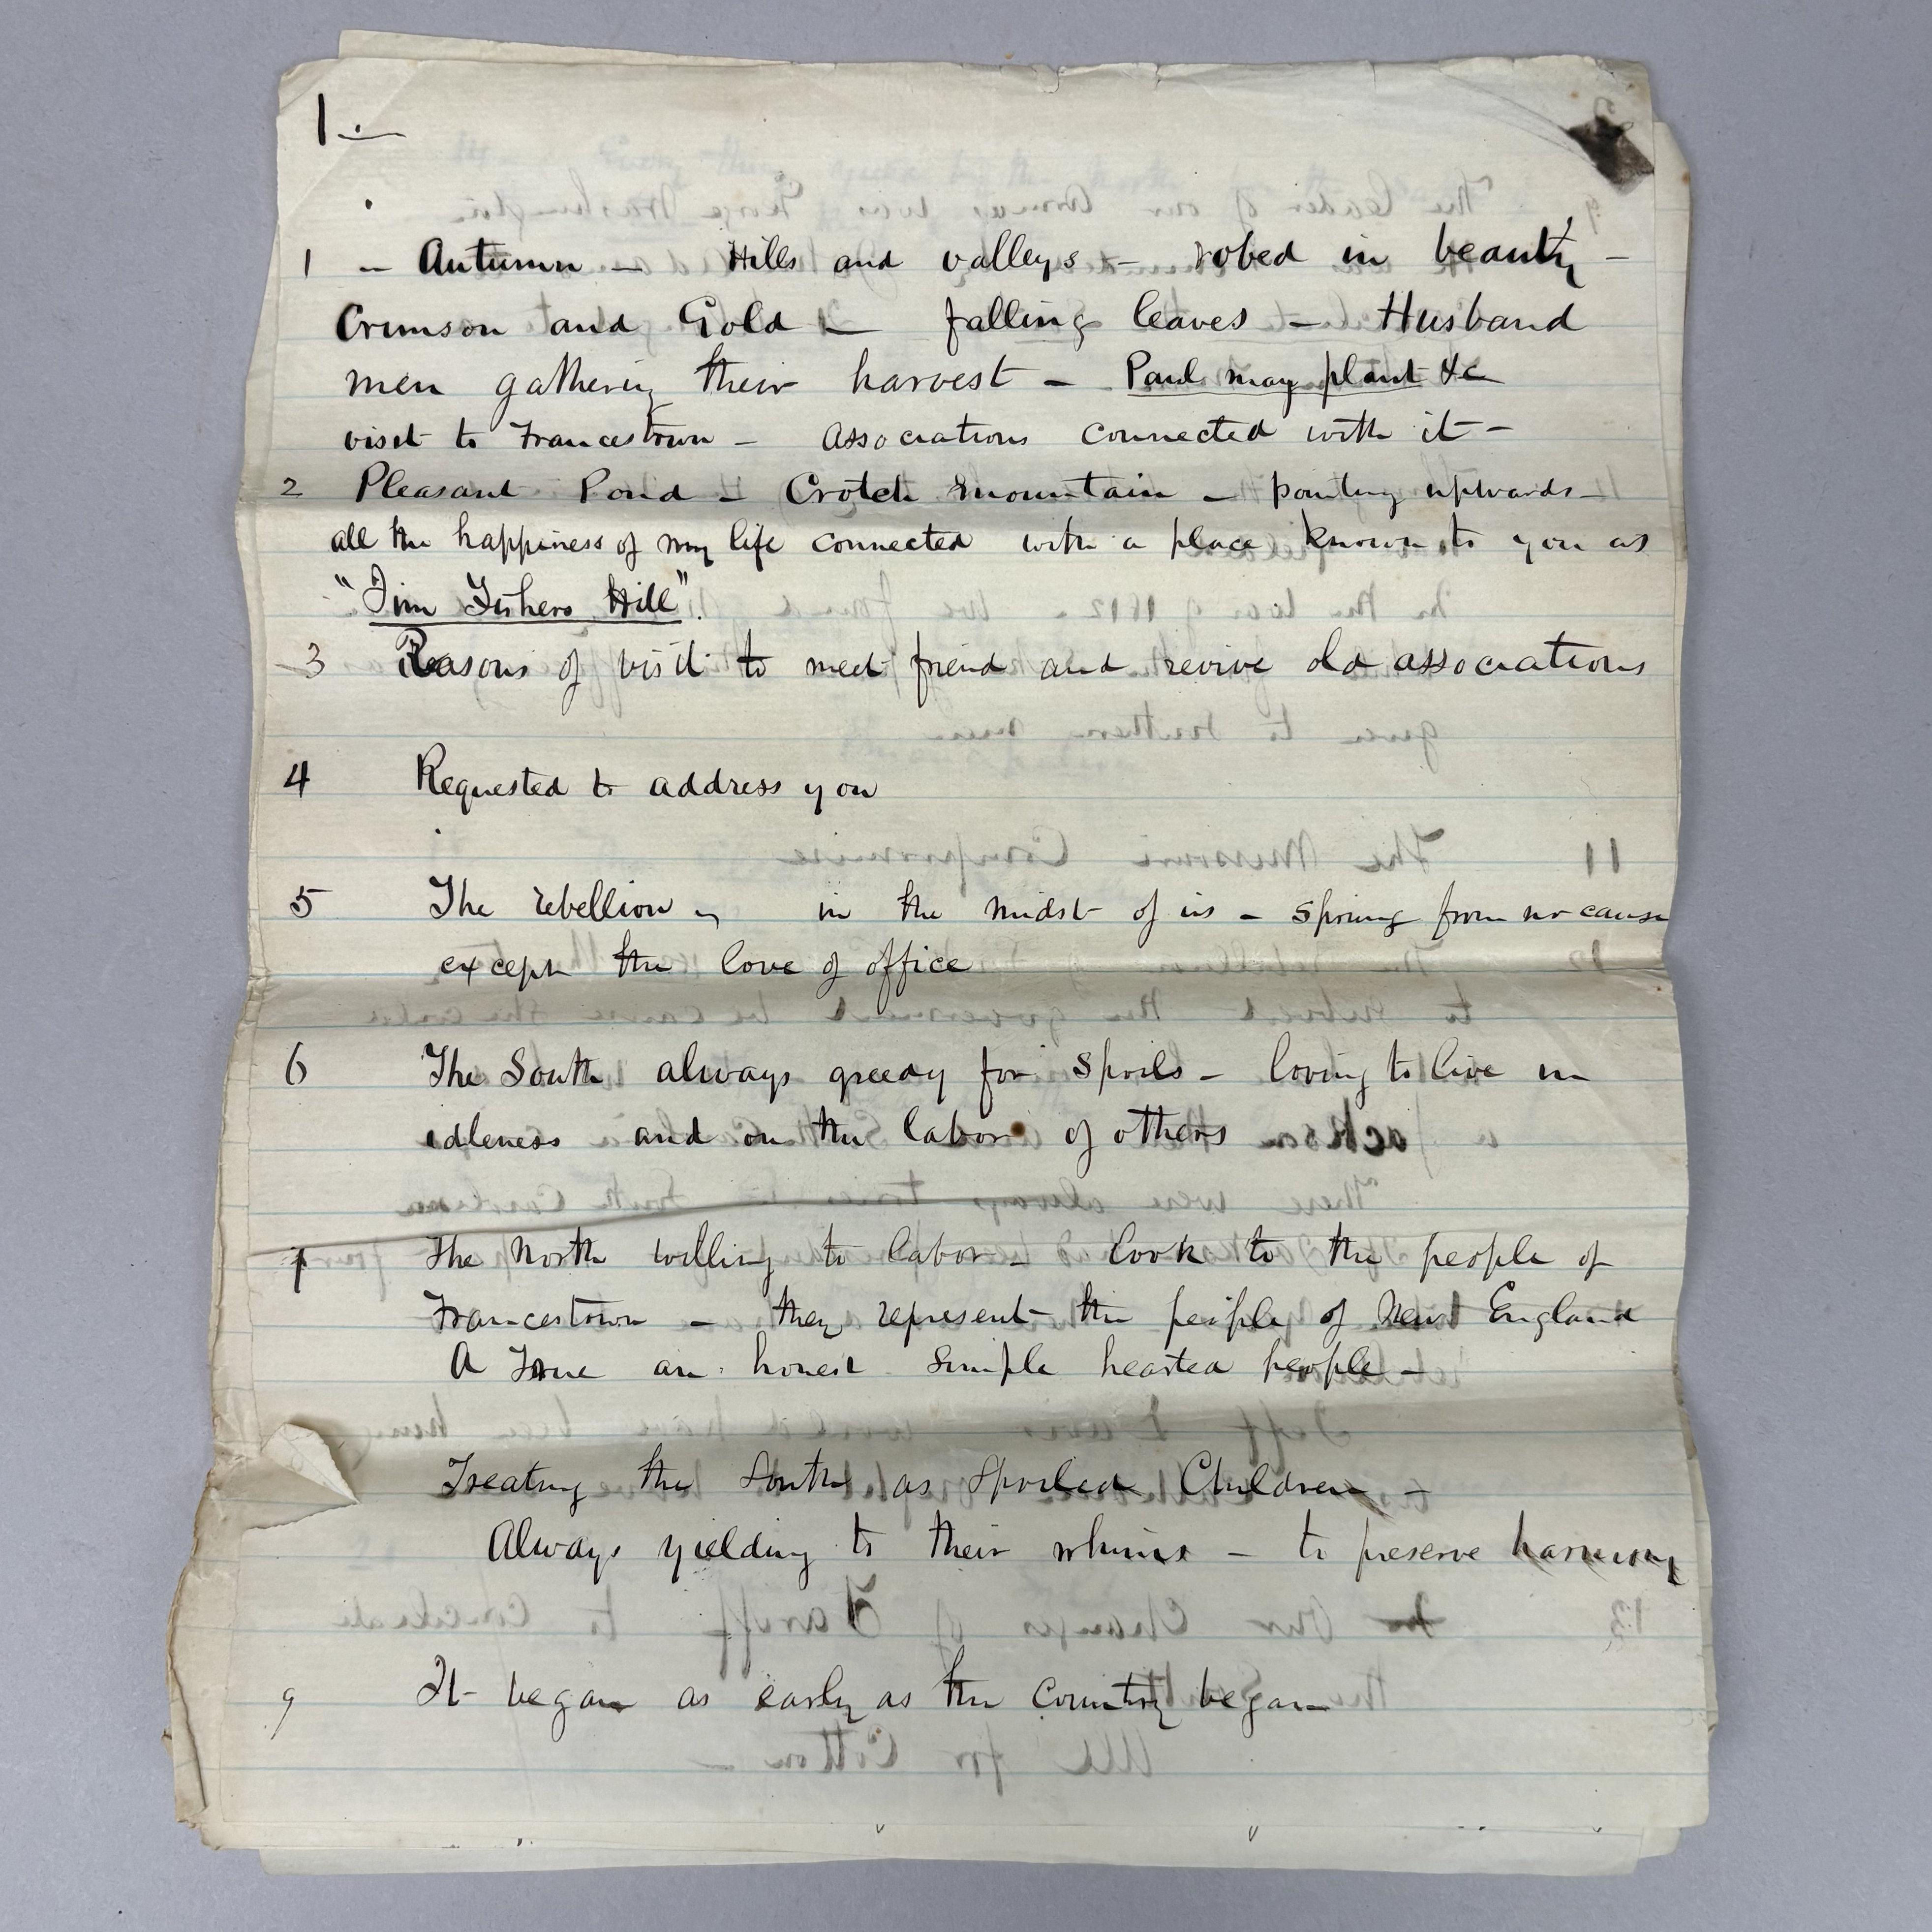 1.
1 - Autumn - Hills and valleys - robed in beauty -
Crimson and Gold - falling leaves - Husband
men gathering their harvest - Paul may plant &c
visit to Francestown - associations connected with it -
2 Pleasant Pond - Crotch Mountain - pointing upwards -
all the happiness of my life connected with a place known to you as
"Jim Fishers Hill".
3 Reasons of visit to meet friend and revive old associations
4 Requested to address you
5 The rebellion in the midst of us - sprung from no cause
except the love of office
6 The South always greedy for spoils - loving to live in
idleness and on the labor of others
7 The North willing to labor - look to the people of
Francestown - they represent the people of New England
A True an honest simple hearted people -
Treating the South as Spoiled Children -
Always yielding to their whims - to preserve harmony
9 It began as early as the country began